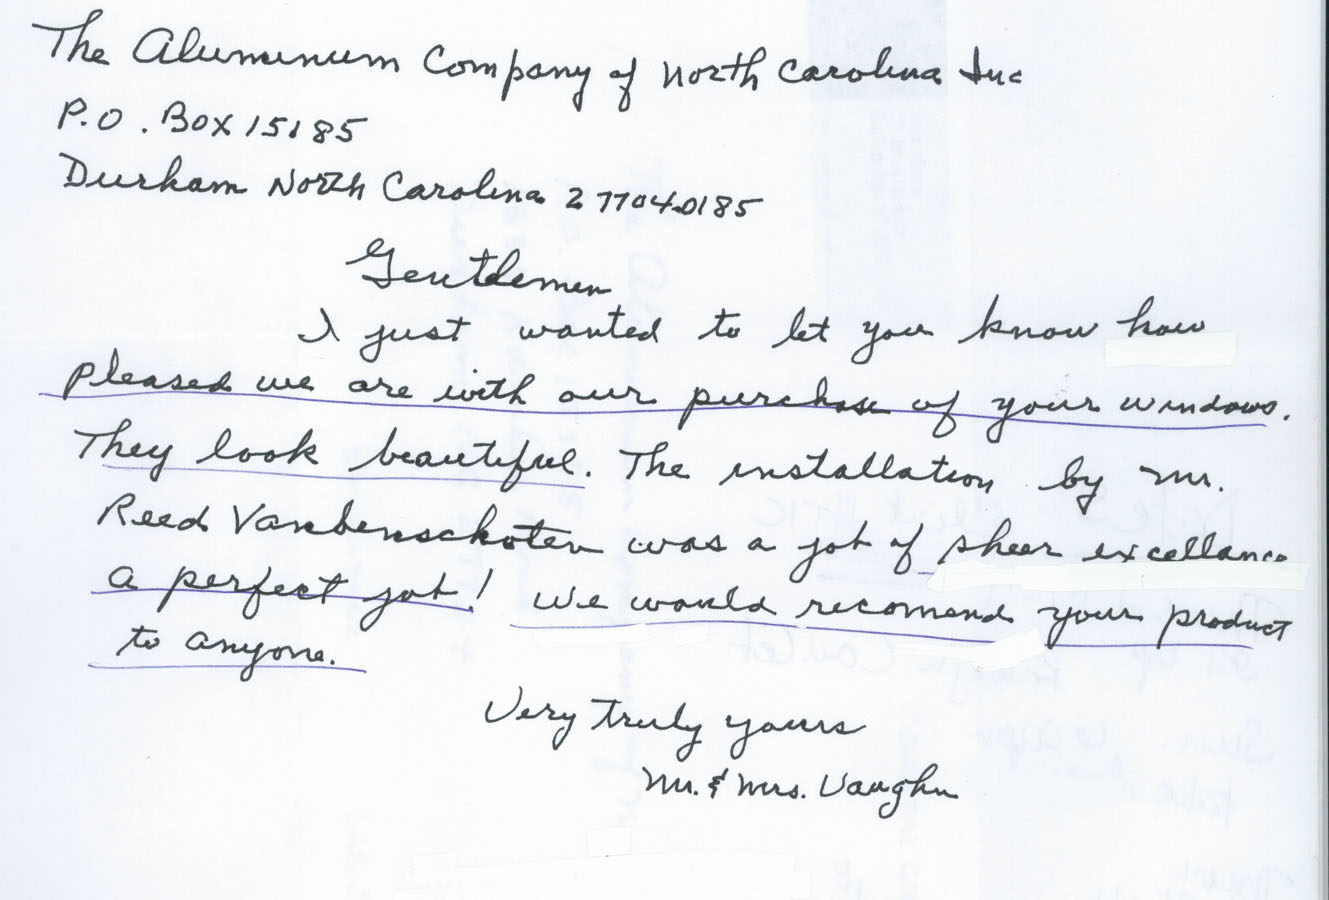 The Aluminum Company of North Carolina Inc
P.O. Box 15185
Durham North Carolina 27704-0185
Gentlemen
I just wanted to let you know how
pleased we are with our purchase of your windows.
They look beautiful. The installation by Mr.
Reed Vanbenschoten was a job of sheer excellance
a perfect job! We would recomend your product
to anyone.
Very truly yours
Mr. & Mrs. Vaughn